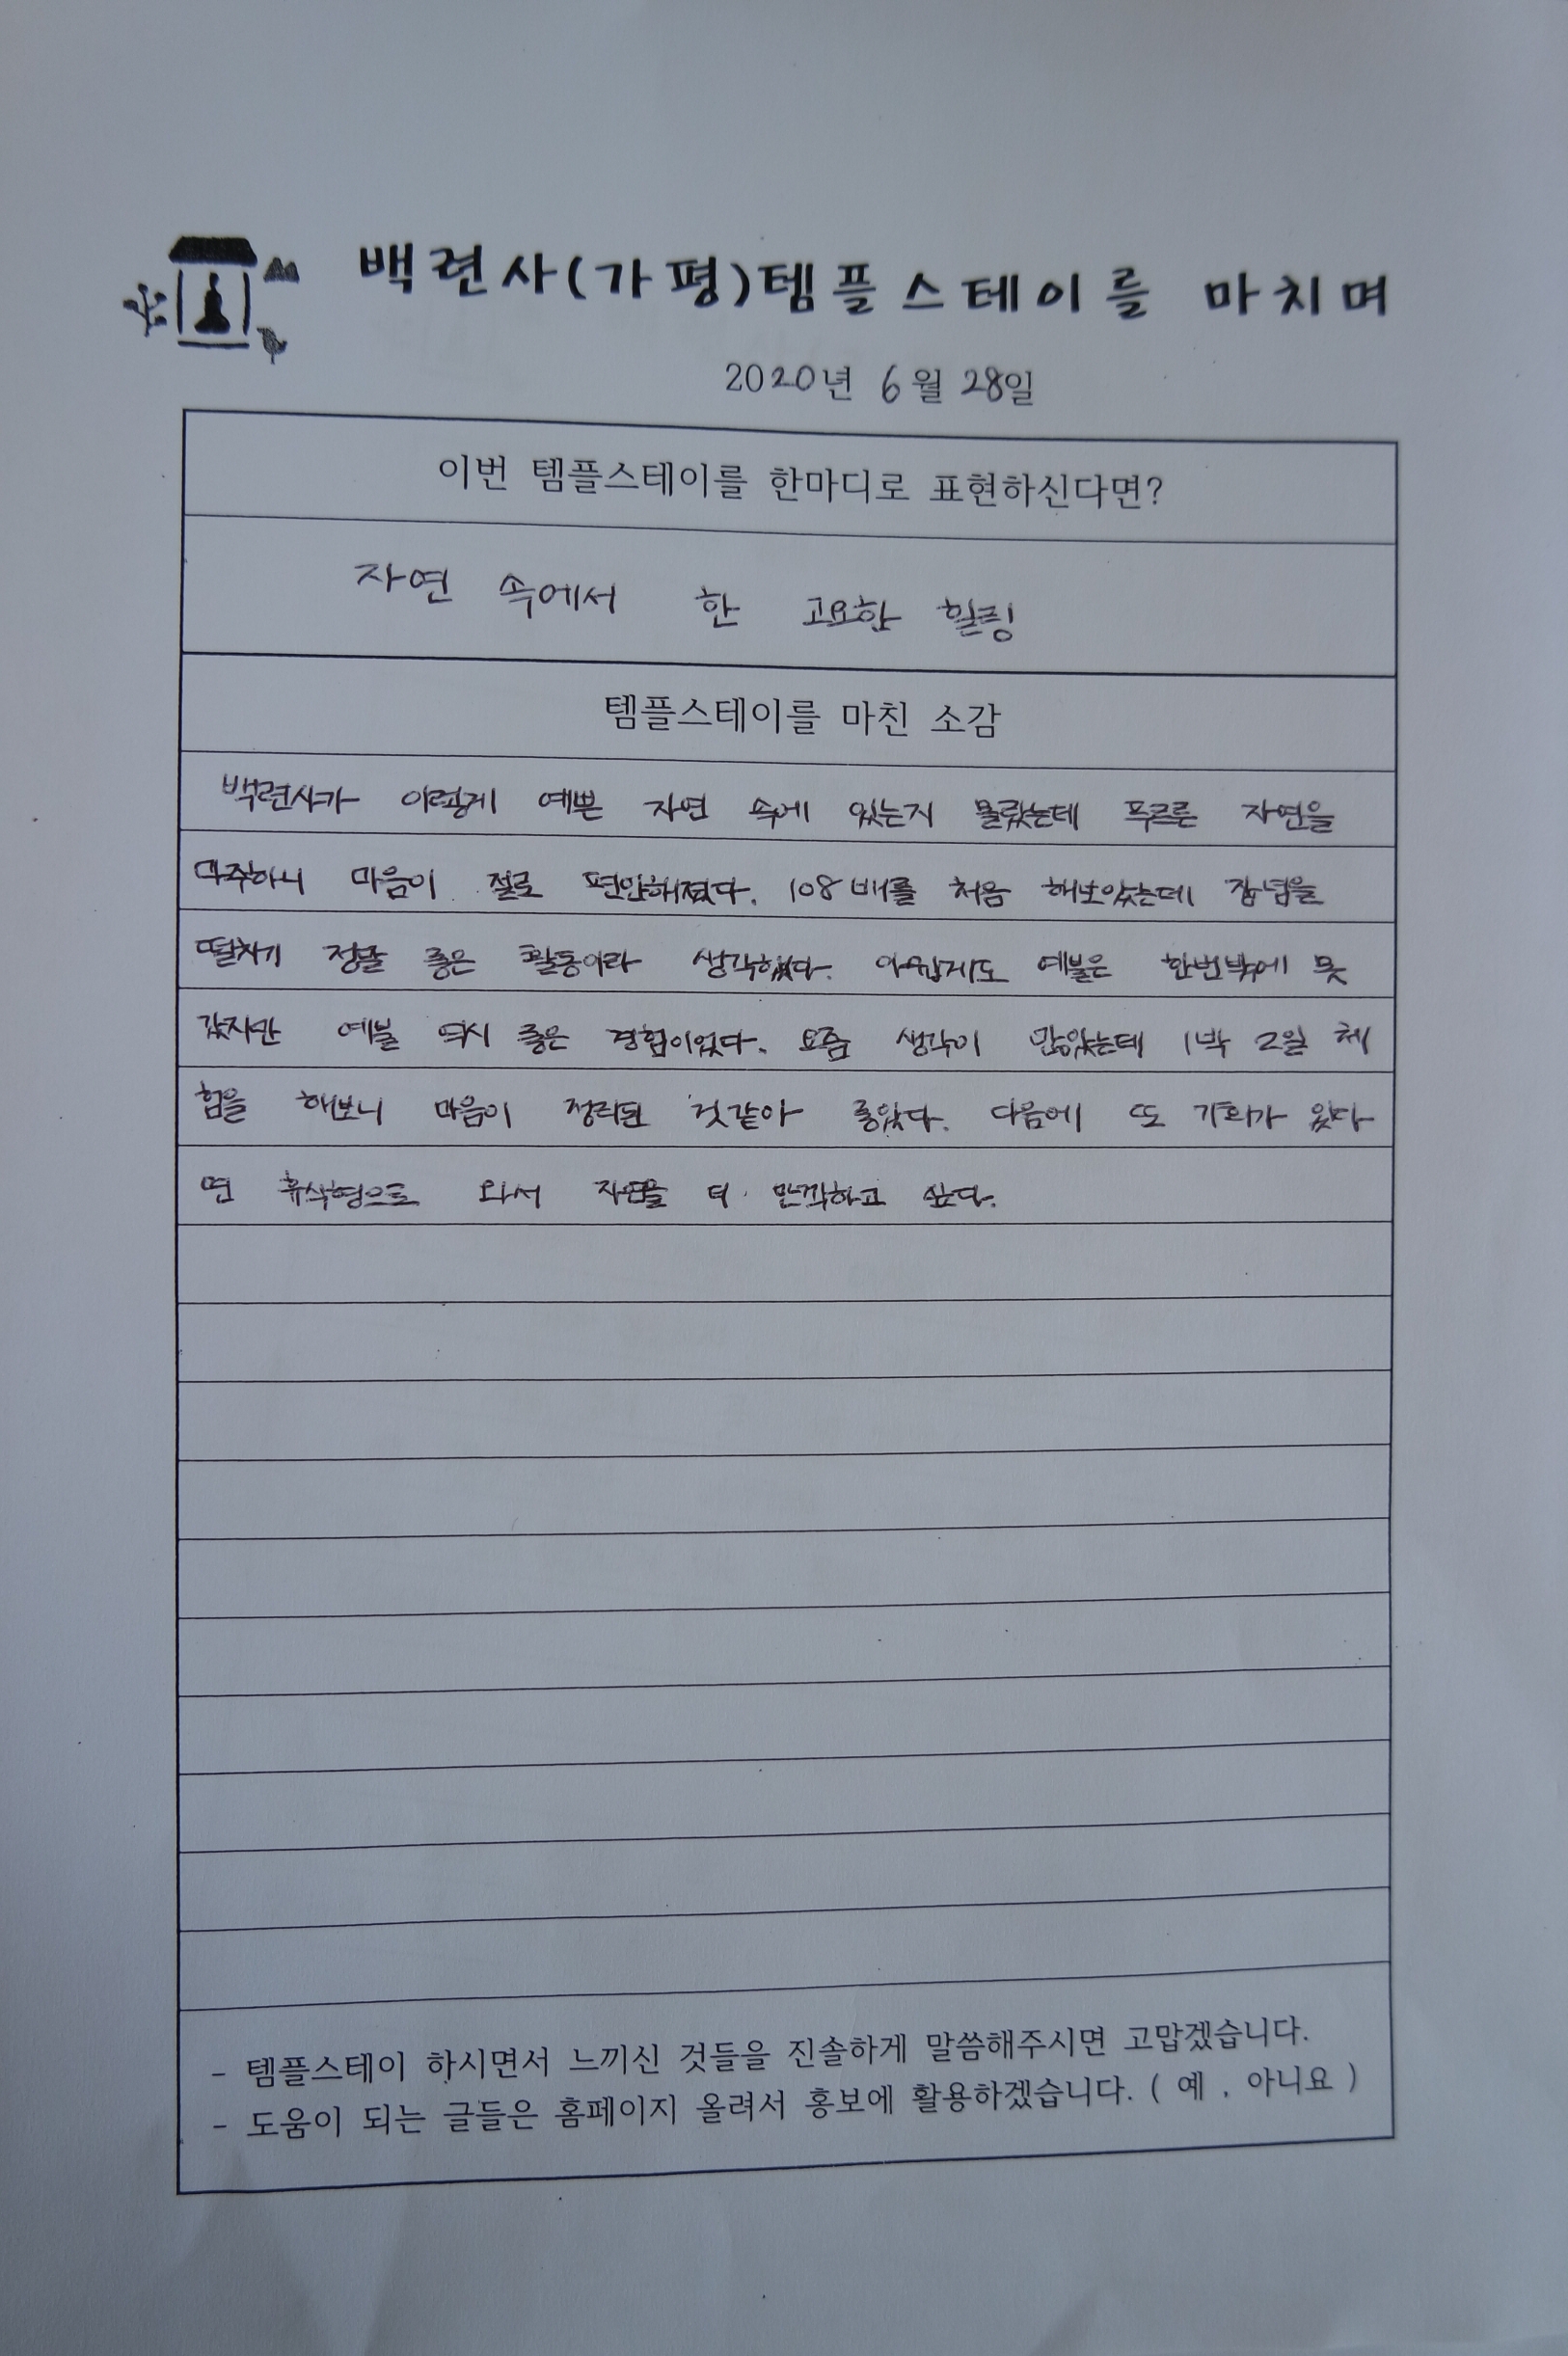 백련사(가평)템플스테이를 마치며
2020년 6월 28일
이번 템플스테이를 한마디로 표현하신다면?
자연 속에서 한 고요한 힐링
템플스테이를 마친 소감
백련사가 이렇게 예쁜 자연 속에 있는지 몰랐는데 푸르른 자연을
마주하니 마음이 절로 편안해졌다. 108배를 처음 해보았는데 잡념을
떨치기 정말 좋은 활동이라 생각했다. 아쉽게도 예불은 한번밖에 못
갔지만 예불 역시 좋은 경험이었다. 요즘 생각이 많았는데 1박 2일 체
험을 해보니 마음이 정리된 것같아 좋았다. 다음에 또 기회가 왔다
면 휴식형으로 와서 자연을 더 만끽하고 싶다.
- 템플스테이 하시면서 느끼신 것들을 진솔하게 말씀해주시면 고맙겠습니다.
- 도움이 되는 글들은 홈페이지 올려서 홍보에 활용하겠습니다. ( 예 , 아니요 )